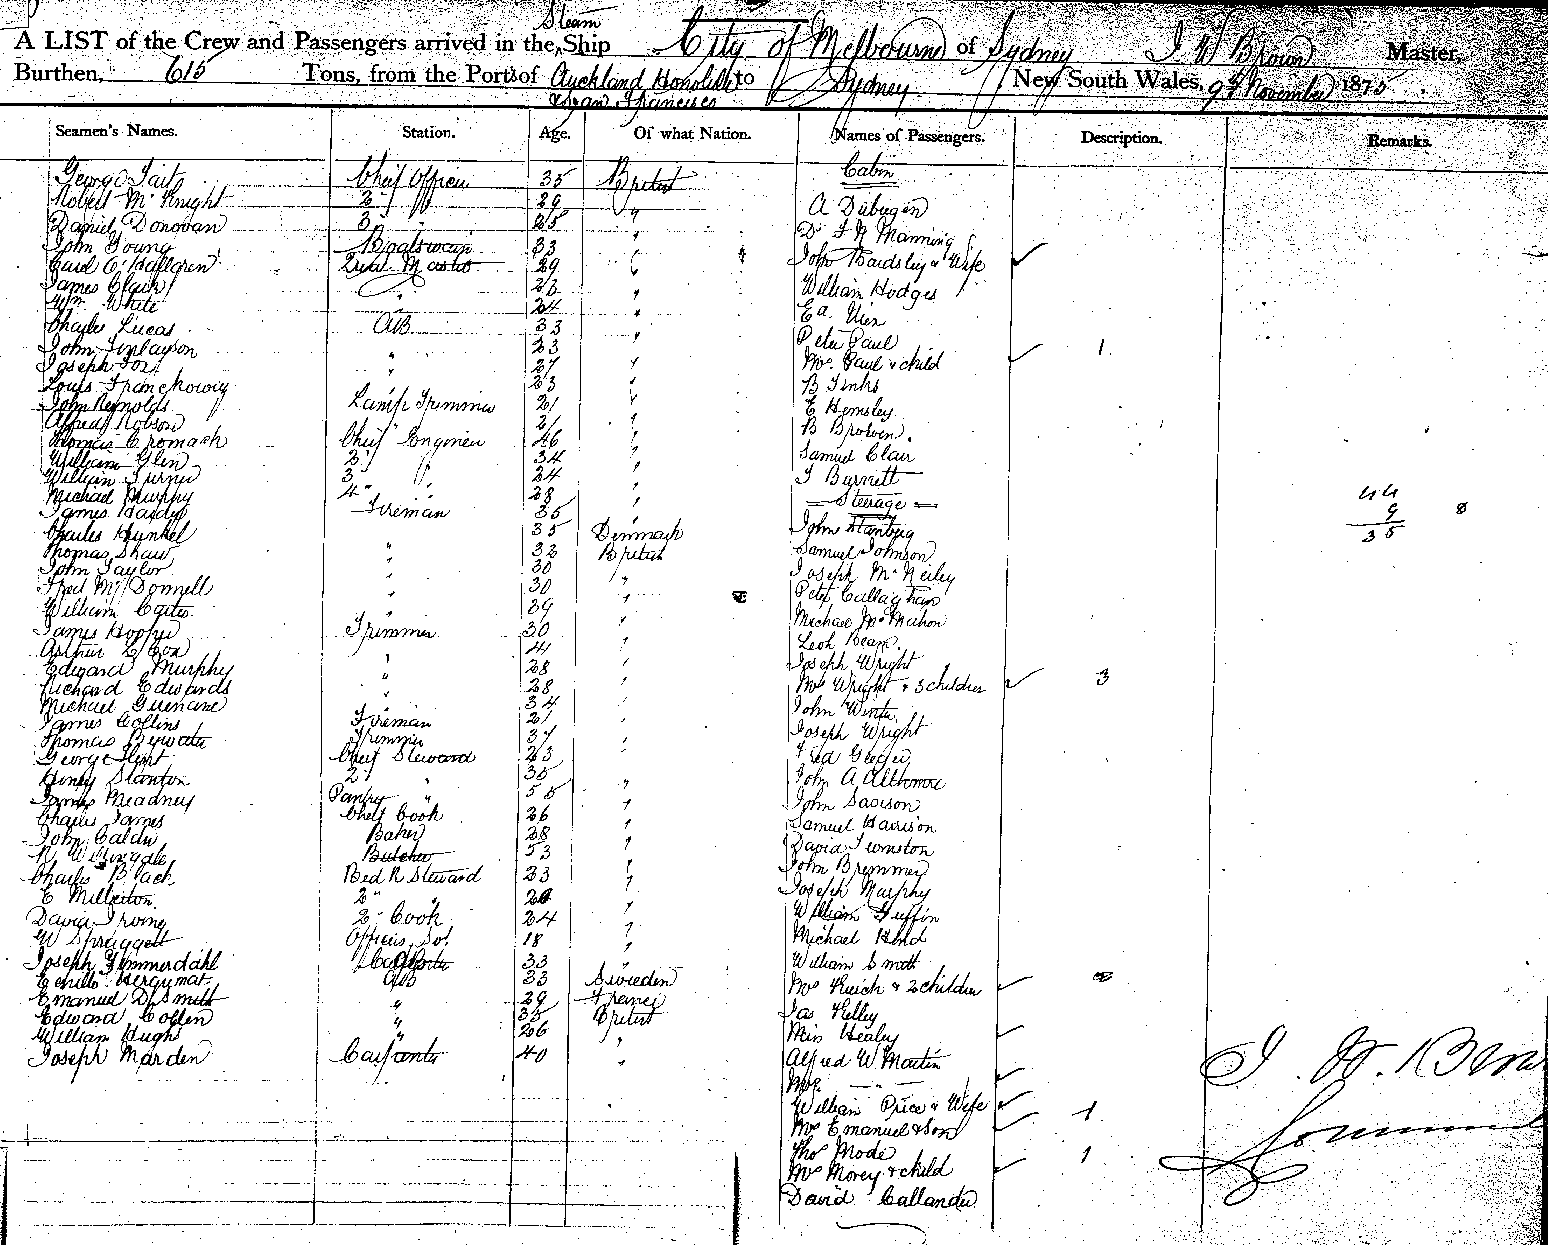 Steam
A LIST of the Crew and Passengers arrived in the Ship City of Melbourne of Sydney J W Brown Master,
Burthen, 615 Tons, from the Ports of Auckland Honolulu to Sydney New South Wales, 9th November 1875
& San Francisco
Seamen's Names. Station. Age. Of what Nation. Names of Passengers. Description. Remarks.
Cabin
George Tait Chief Officer 35 British
Robert McKnight 2 " 29 " A Dubugen
Daniel Donovan 3 " 25 " Dr F N Manning
John Young Boatswain 33 "
Carl O Hallgren Quar Master 29 " John Bardsley & Wife
James Clark " 23 " William Hodges
Wm White " 24 "
Charles Lucas AB 33 " Peter Paul
John Finlayson " 23 " Mrs Paul & child 1
Joseph Fox " 27 "
Louis Franckowig 23 " B Jenks
John Reynolds Lamp Trimmer 21 " E Hemsley
Alfred Robson " 21 " B Brown
Thomas Cromach Chief Engineer 46 "
William Glen 2 " 34 " Samuel Clair
William Turner 3 24 " J Burnett
Michael Murphy 4 " " 28 " Steerage 44
James Hardy Fireman 35 " 9 8
Charles Hunkel 35 Denmark John 35
Thomas Shaw " 32 British Samuel Johnson
John Taylor " 30 Joseph McNeiley
Fred McDonnell " 30 " Peter Callaghan
William Carter " 39 " Michael McMahon
James Hopper Trimmer 30 " Leok Bean
Arthur L Cox 41 " Joseph Wright
Edward Murphy " 28 " Mrs Wright & 3 children 3
Richard Edwards " 28 "
Michael Guenane " 34 " John Winter
James Collins Fireman 21 " Joseph Wright
Thomas Bywater Trimmer 37 "
George Flint Chief Steward 23 Fred
Henry Stanton 2 35 " John A
James Meadney Pantry " 55 " John Davison
Charles James Chief Cook 26 " Samuel Harrison
John Calder Baker 28 " David
Butcher 53 " John Bremmer
Charles Black Bed R Steward 23 " Joseph Murphy
E Milberton 2 " " " William Griffin
David Irving 2 " Cook 24 "
W Spraggett Officers Sert 18 " Michael Hind
Joseph Zimmerdahl 33 " William Smith
AB 33 Sweden Mrs & 2 children 2
Emanuel D Smith " 29 France Jas Kelley
Edward Collen " 35 British Miss Healey
William Hugh " 26 "
Joseph Marden Carpenter 40 " Alfred W Martin
Mrs — " —
William Price & Wife 1
Mrs Emanuel & Son
Thos Mode 1
Mrs Morey & child
David Callander
J. W. Brown